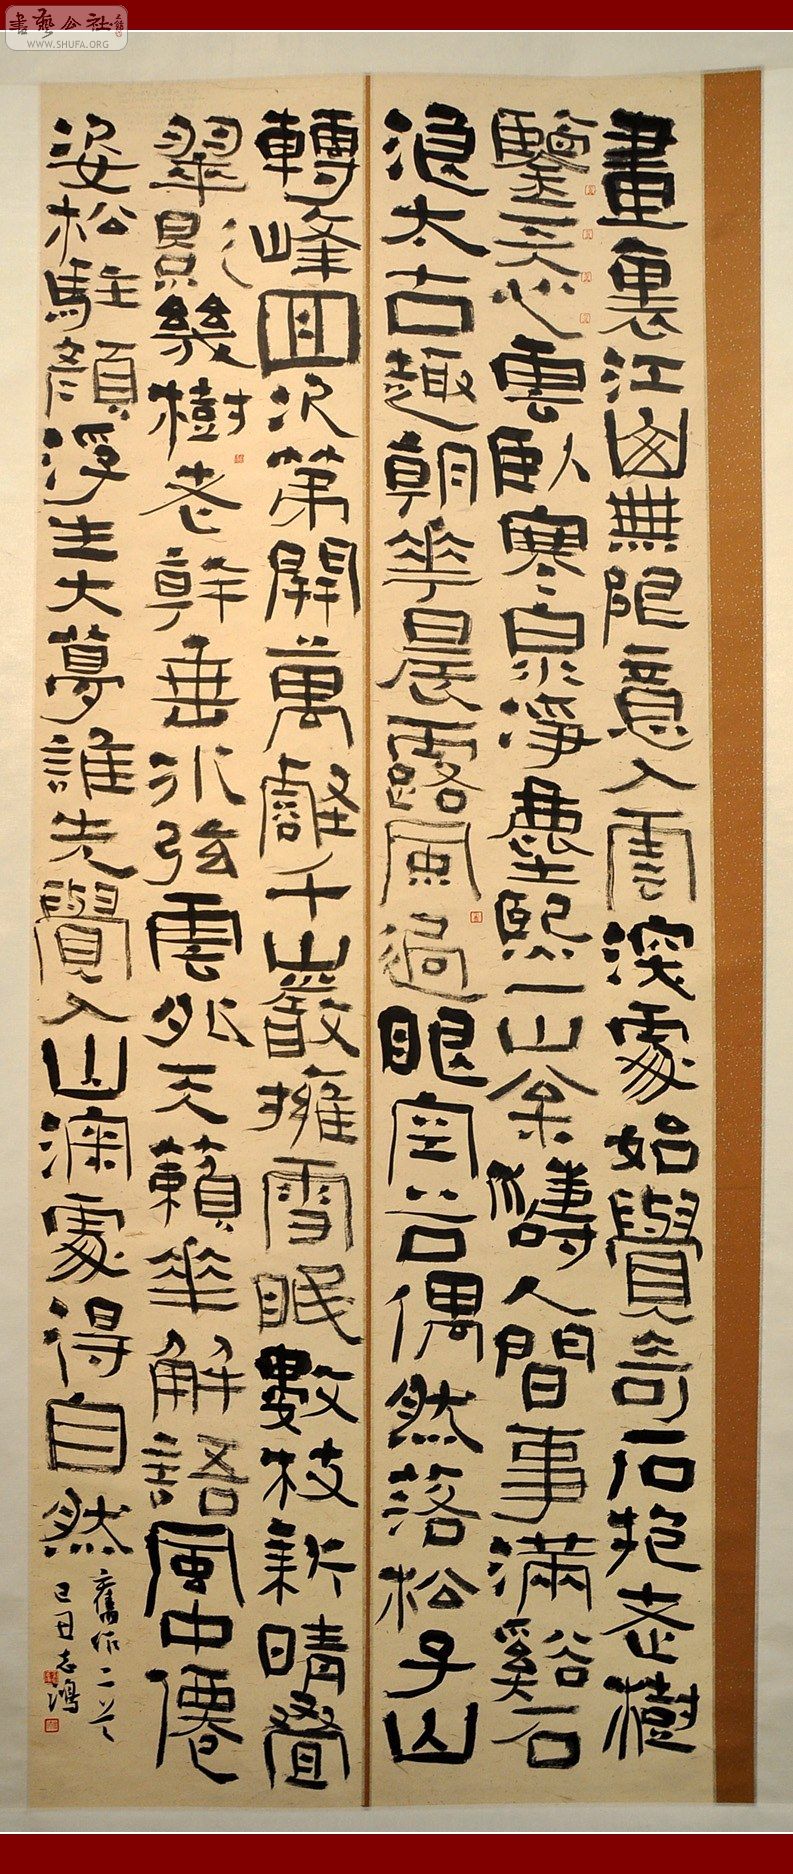 書藝公社
WWW.SHUFA.ORG
畫裏江無限意入雲深處始覺奇石抱老樹
鑒天心雲臥寒泉淨塵熙一山枀濤人間事滿谿石
浪太古趣朝華晨露風過眼空谷偶然落松子山
轉峰回次第開萬壑千山巖擁雪眠數枝新晴疊
翠影幾樹老幹垂冰弦雲外天籟華解語風中僊
姿松駐顏浮生大夢誰先覺入山深處得自然
舊作二首
己丑志鴻